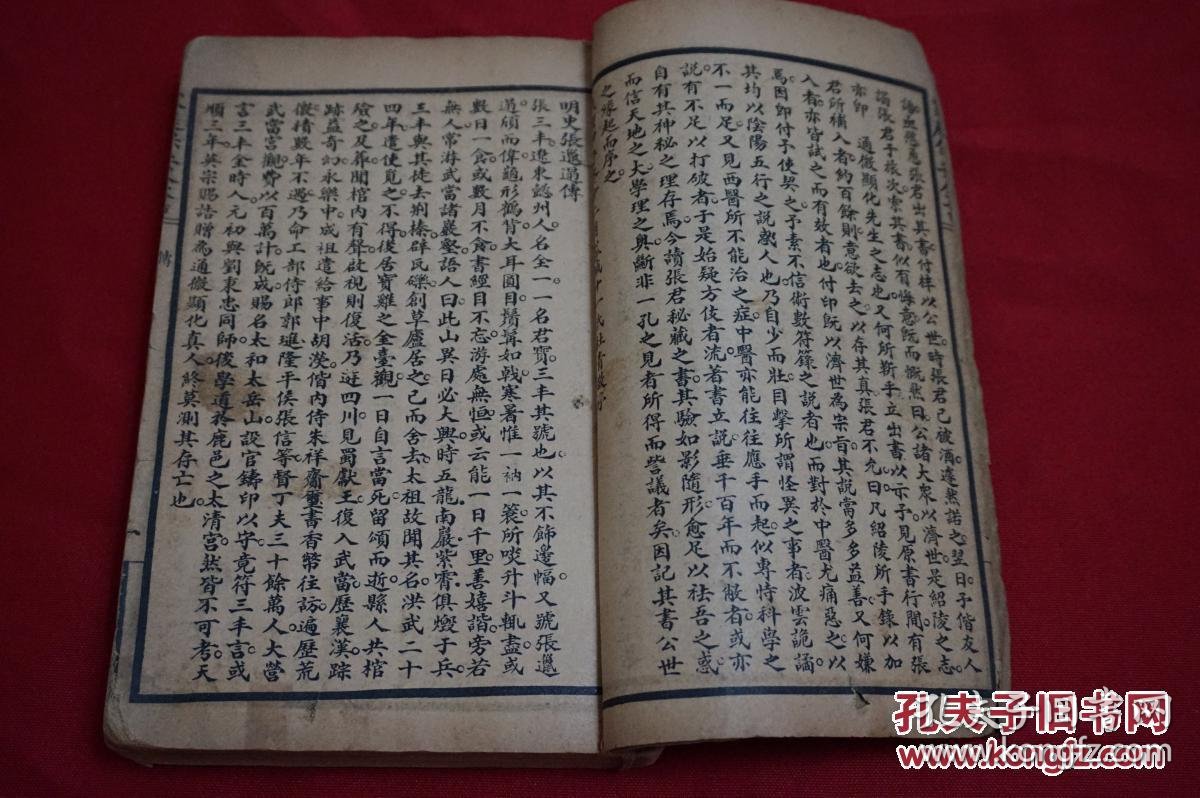 謫張君于旅次索其書似有悔意旣而慨然曰公諸大衆以濟世是紹陵之志
亦卽　通微顯化先生之志也又何所靳乎立出書以示予見原書行間有張
君所補入者約百餘則意欲去之以存其真張君不允曰凡紹陵所手錄以加
入者亦皆試之而有效者也付印旣以濟世為宗旨其說當多多益善又何嫌
焉因卽付予使契之予素不信術數符籙之說者也而對於中醫尤痛惡之以
其均以陰陽五行之說惑人也乃自少而壯目擊所謂怪異之事者波雲詭譎
不一而足又見西醫所不能治之症中醫亦能往往應手而起似專恃科學之
說有不足以打破者于是始疑方伎者流著書立說垂千百年而不敝者或亦
自有其神秘之理存焉今讀張君秘藏之書其驗如影隨形愈足以祛吾之惑
而信天地之大學理之奧斷非一孔之見者所得而訾議者矣因記其書公世
之緣起而序之
明史張邋遢傳
張三丰遼東懿州人名全一一名君寶三丰其號也以其不飾邊幅又號張邋
遢頎而偉龜形鶴背大耳圓目鬚髯如戟寒暑惟一衲一簑所啖升斗輒盡或
數日一食或數月不食書經目不忘游處無恒或云能一日千里善嬉諧旁若
無人常游武當諸巖壑語人曰此山異日必大興時五龍南巖紫霄俱燬于兵
三丰與其徒去荊榛辟瓦礫創草廬居之已而舍去太祖故聞其名洪武二十
四年遣使覓之不得後居寶雞之金臺觀一日自言當死留頌而逝縣人共棺
殮之及葬聞棺內有聲啟視則復活乃遊四川見蜀獻王復入武當歷襄漢踪
跡益奇幻永樂中成祖遣給事中胡濙偕內侍朱祥齎璽書香幣往訪遍歷荒
徼積數年不遇乃命工部侍郎郭璡隆平侯張信等督丁夫三十餘萬人大營
武當宮觀費以百萬計旣成賜名太和太岳山設官鑄印以守竟符三丰言或
言三丰金時人元初與劉秉忠同師後學道於鹿邑之太清宮然皆不可考天
順三年英宗賜誥贈為通微顯化真人終莫測其存亡也
傳
一
孔夫子旧书网
www.kongfz.com